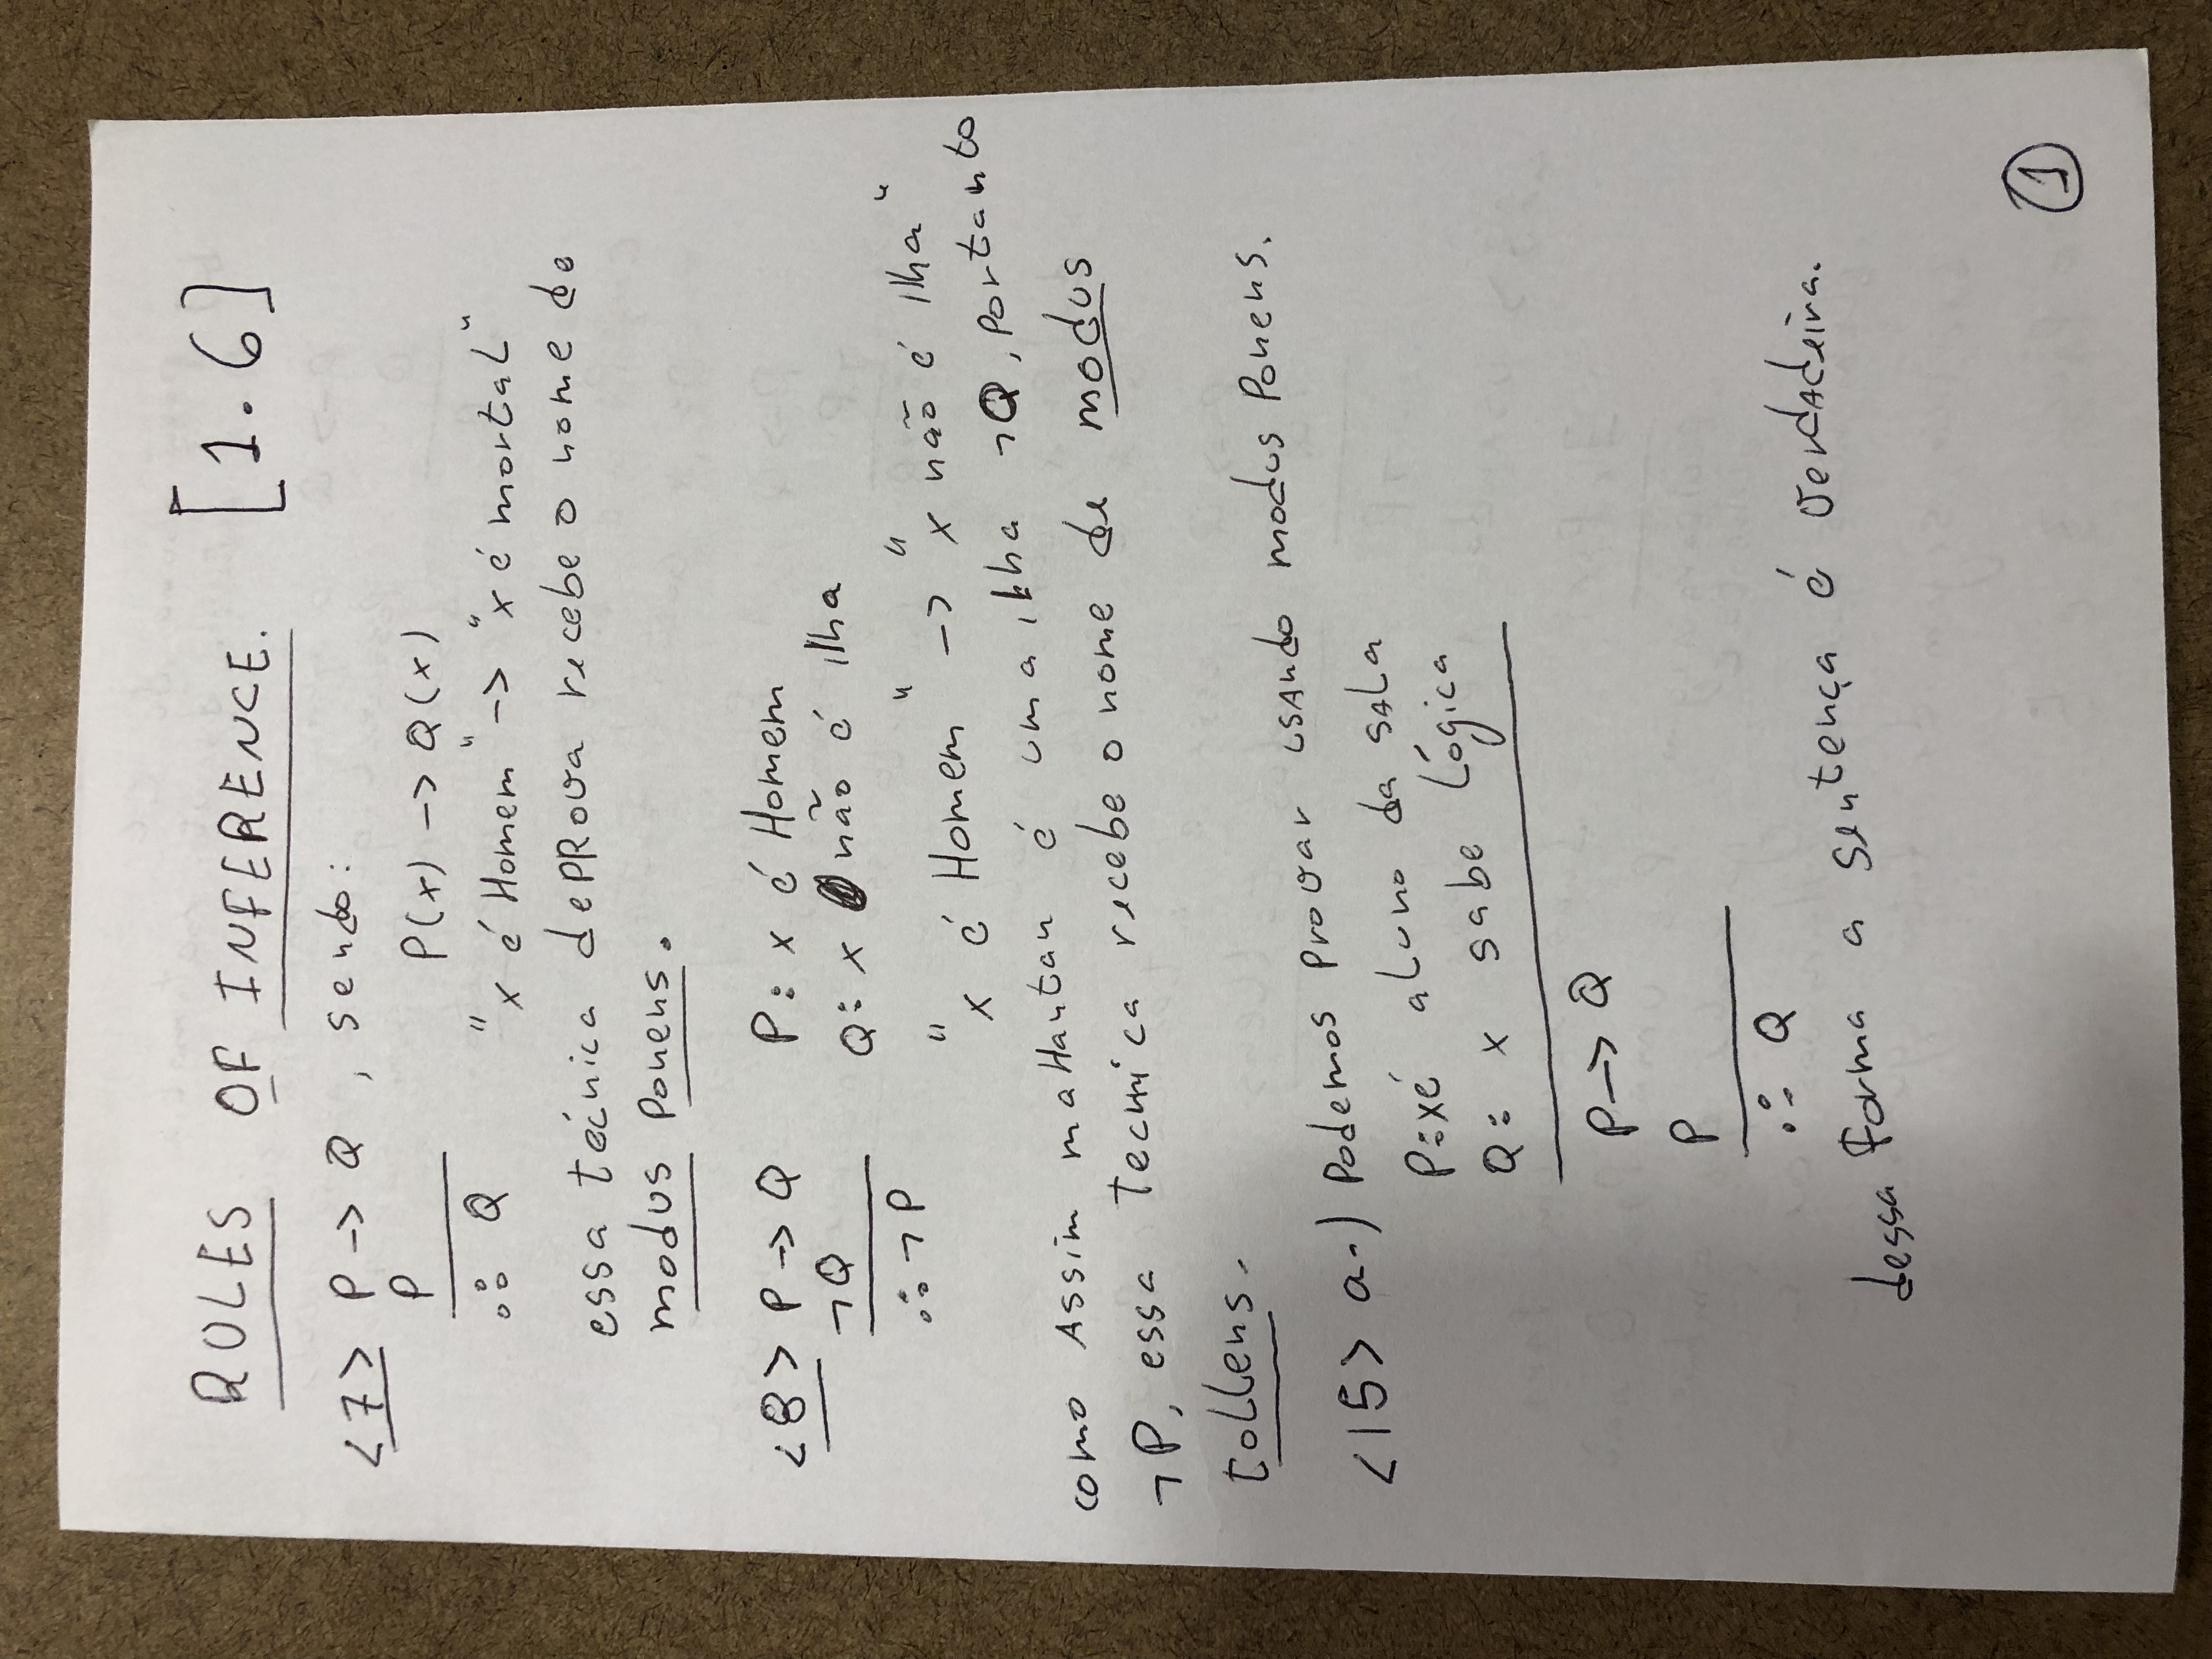 RULES OF INFERENCE. [1.6]
<7> P -> Q , sendo:
P
P(x) -> Q(x)
∴ Q
"x é Homem" -> "x é mortal"
essa técnica de PROva recebe o nome de
modus Ponens.
<8> P -> Q P: x é Homem
¬Q Q: x não é ilha
∴ ¬P
"x é Homem" -> "x não é ilha"
como Assim maHantan é uma ilha ¬Q, portanto
¬P, essa Tecnica recebe o nome de modus
tollens.
<15> a-) Podemos Provar usAndo modus Ponens.
P: x é aluno da sala
Q: x sabe lógica
P -> Q
P
∴ Q
dessa Forma a sentença é verdAdeira.
1